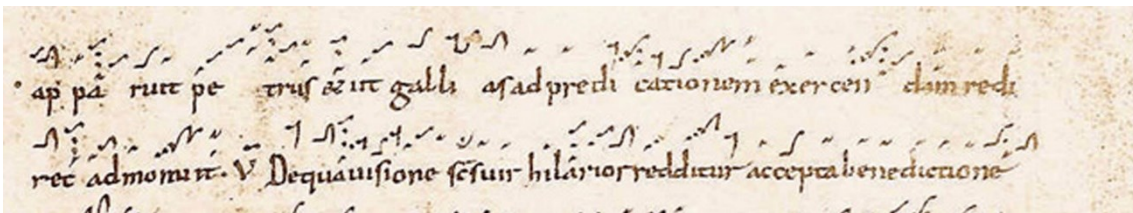 ap pa ruit pe trus & ut gallias ad predi cationem exercendam redi
ret admonuit. V De qua uisione scs uir hilarior redditur accepta benedictione